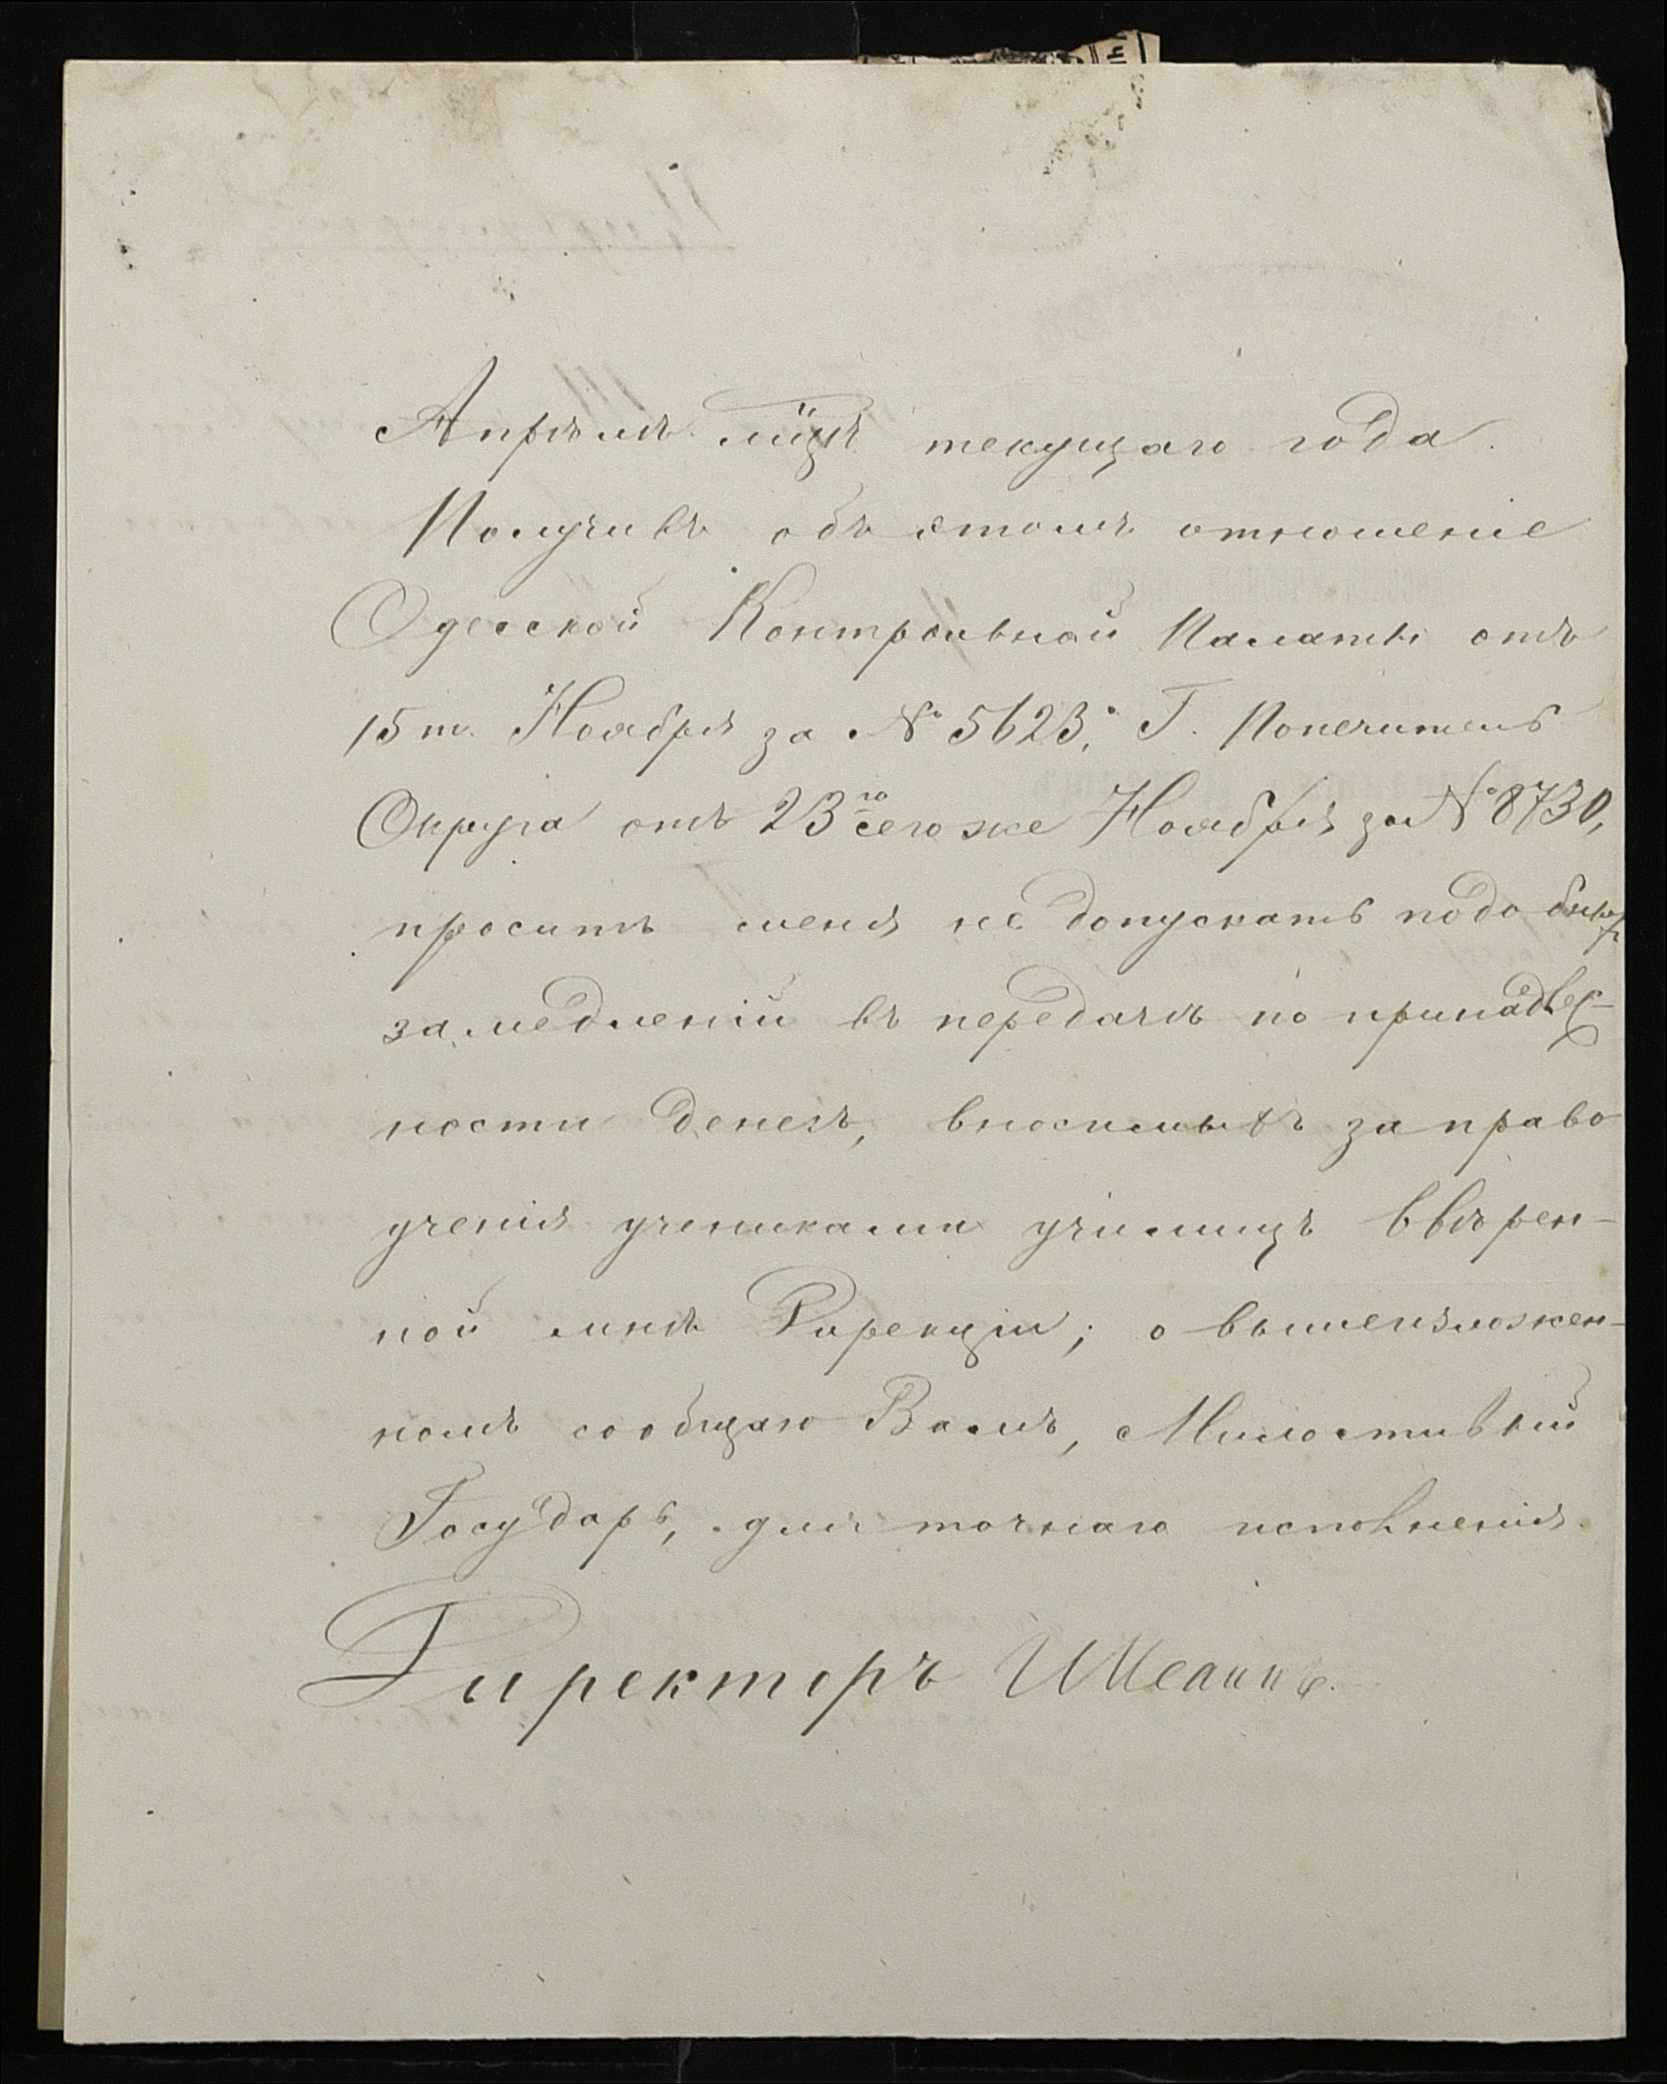 Апрѣлѣ мцѣ текущаго года.
Получивъ объ этомъ отношеніе
Одесской Контрольной Палаты отъ
15 т. Ноября за № 5623, Г. Попечитель
Округа отъ 23го сего же Ноября за № 8730,
проситъ меня не допускать подобныхъ
замедленій въ передачѣ по принадлеж-
ности денегъ, вносимыхъ за право
ученія учениками училищъ ввѣрен-
ной мнѣ Дирекціи; о вышеизложен-
номъ сообщаю Вамъ, Милостивый
Государь, для точнаго исполненія.
Директоръ